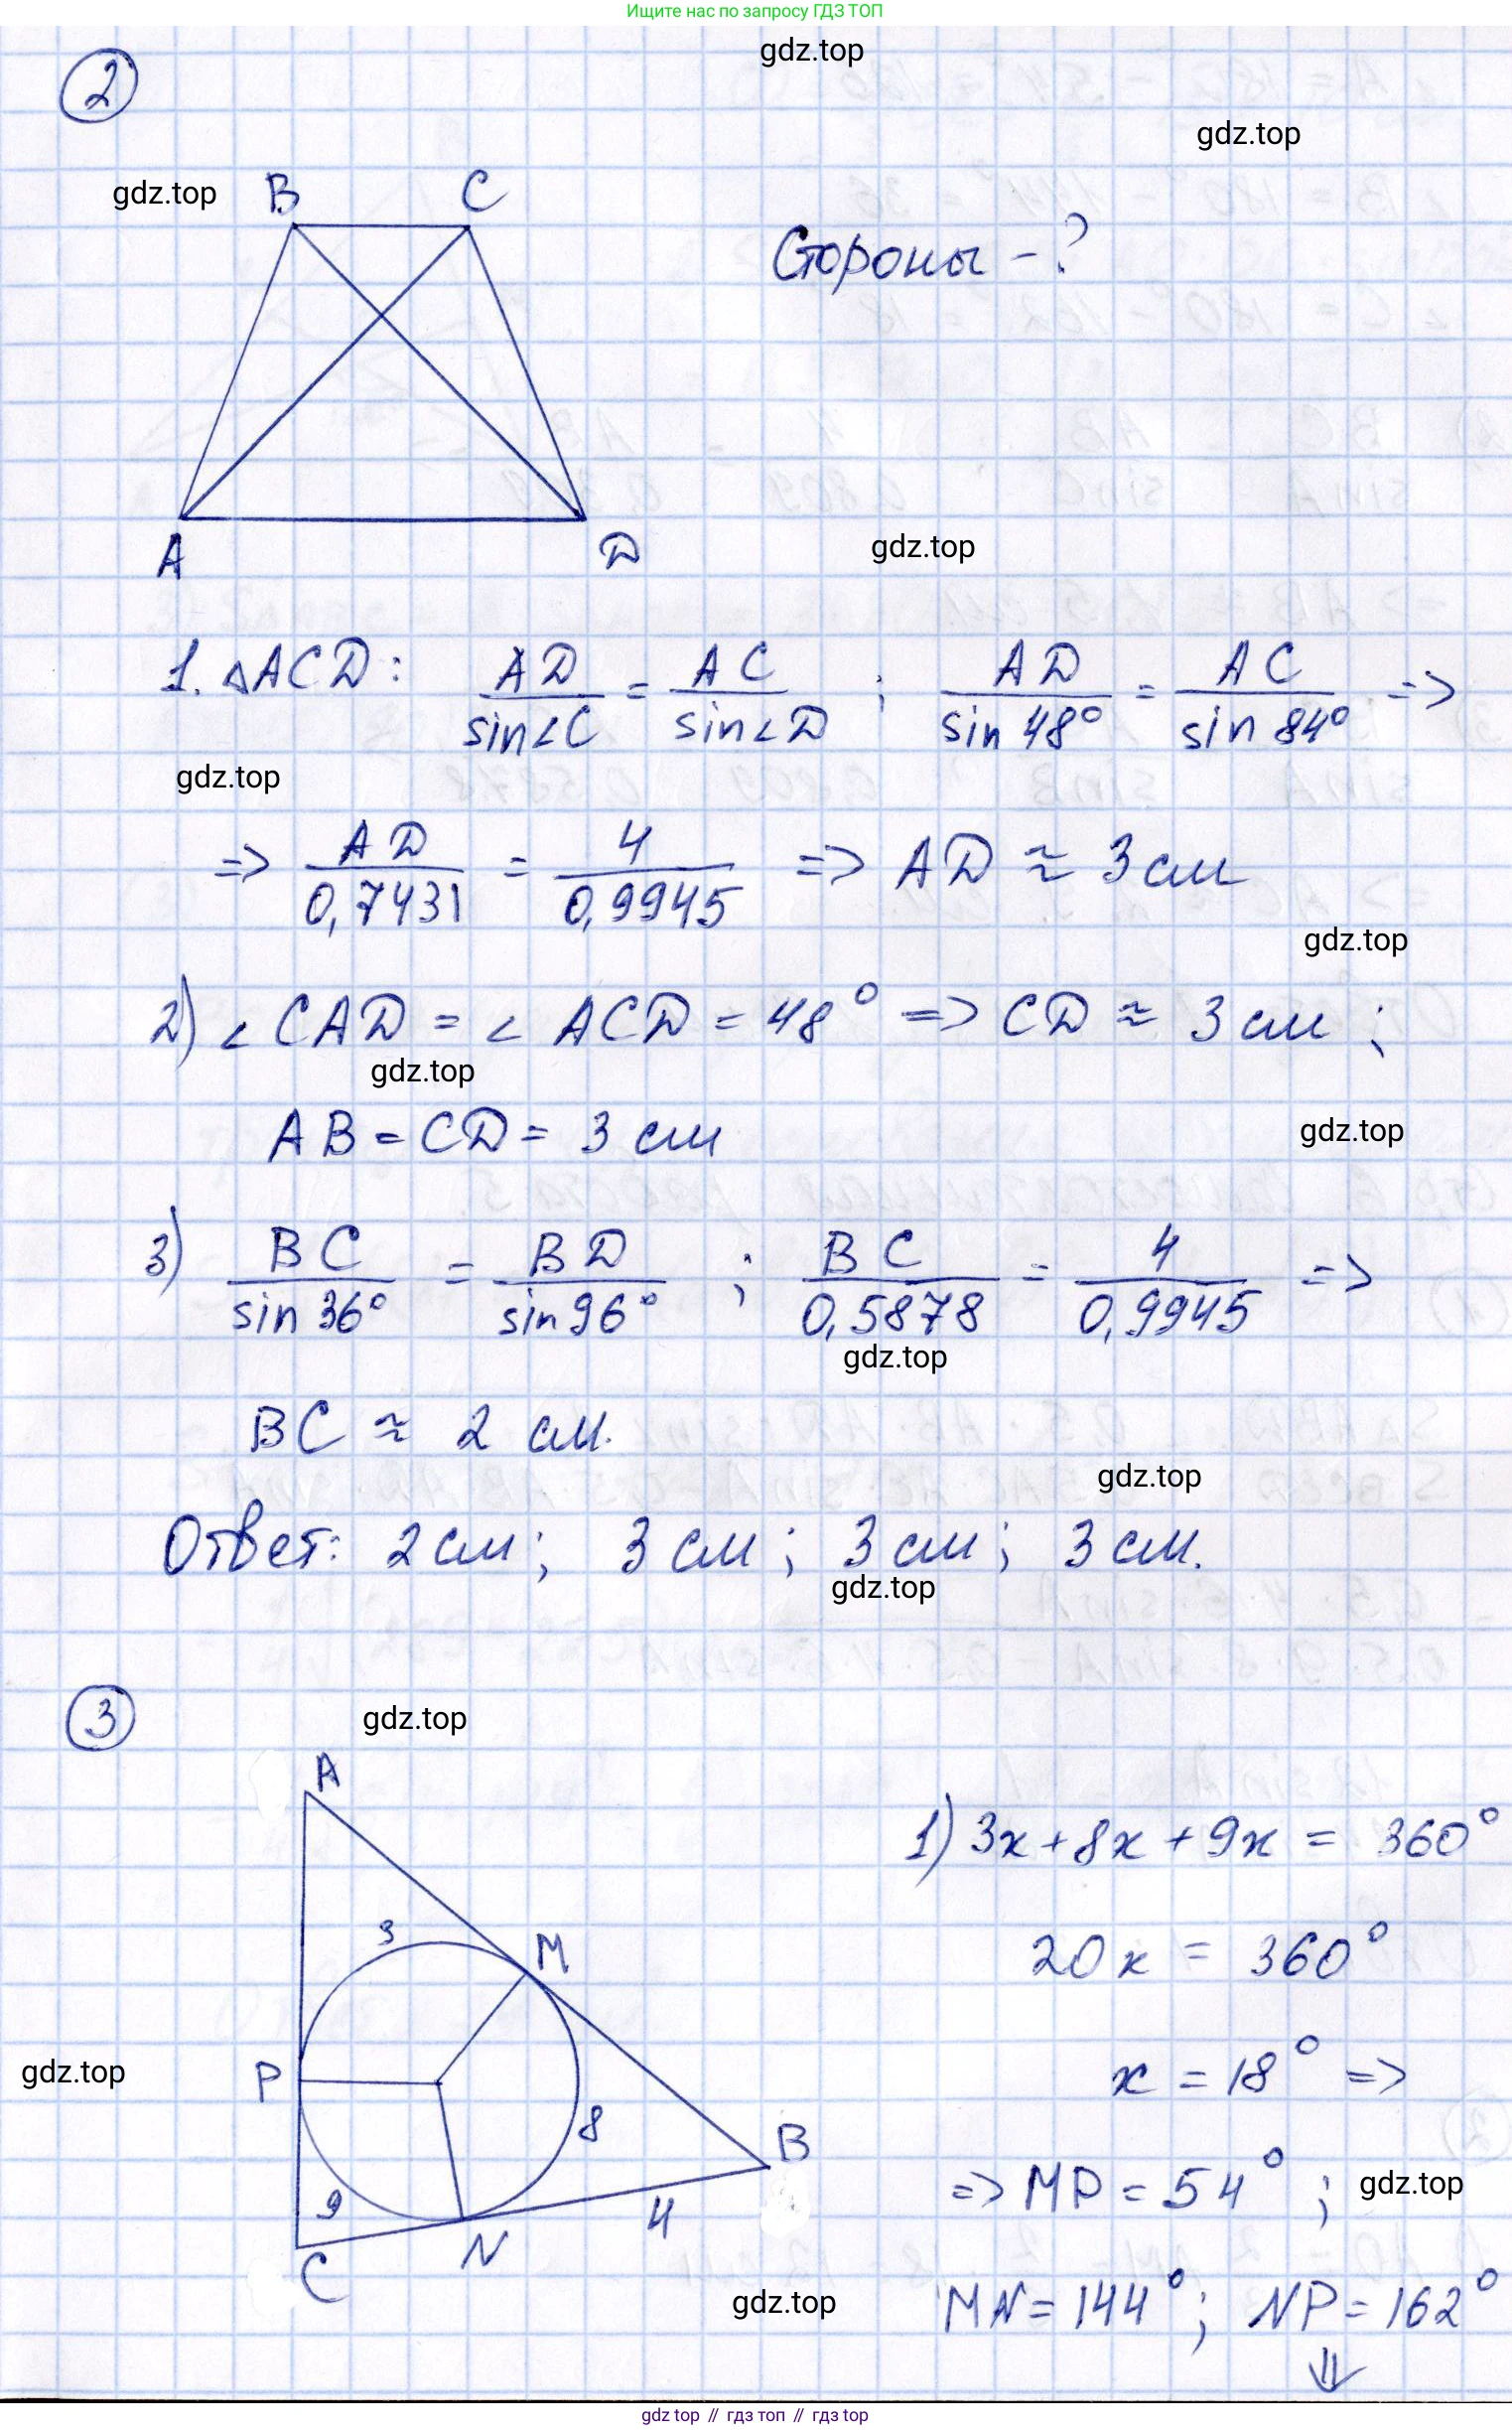 Ищите нас по запросу ГДЗ ТОП
gdz.top
2
gdz.top
gdz.top
B C
Стороны - ?
A D
gdz.top
1. △ACD: AD/sin∠C = AC/sin∠D ; AD/sin 48° = AC/sin 84° =>
gdz.top
=> AD/0,7431 = 4/0,9945 => AD ≈ 3 см
gdz.top
2) ∠CAD = ∠ACD = 48° => CD ≈ 3 см ;
gdz.top
AB = CD = 3 см
gdz.top
3) BC/sin 36° = BD/sin 96° ; BC/0,5878 = 4/0,9945 =>
gdz.top
BC ≈ 2 см.
gdz.top
Ответ: 2 см ; 3 см ; 3 см ; 3 см.
gdz.top
3
gdz.top
A
1) 3x + 8x + 9x = 360°
3
M
20x = 360°
gdz.top
P
x = 18° =>
8
B
=> MP = 54° ;
gdz.top
9
4
N
C
gdz.top
MN = 144° ; NP = 162°
⇓
gdz top // гдз топ // гдз top